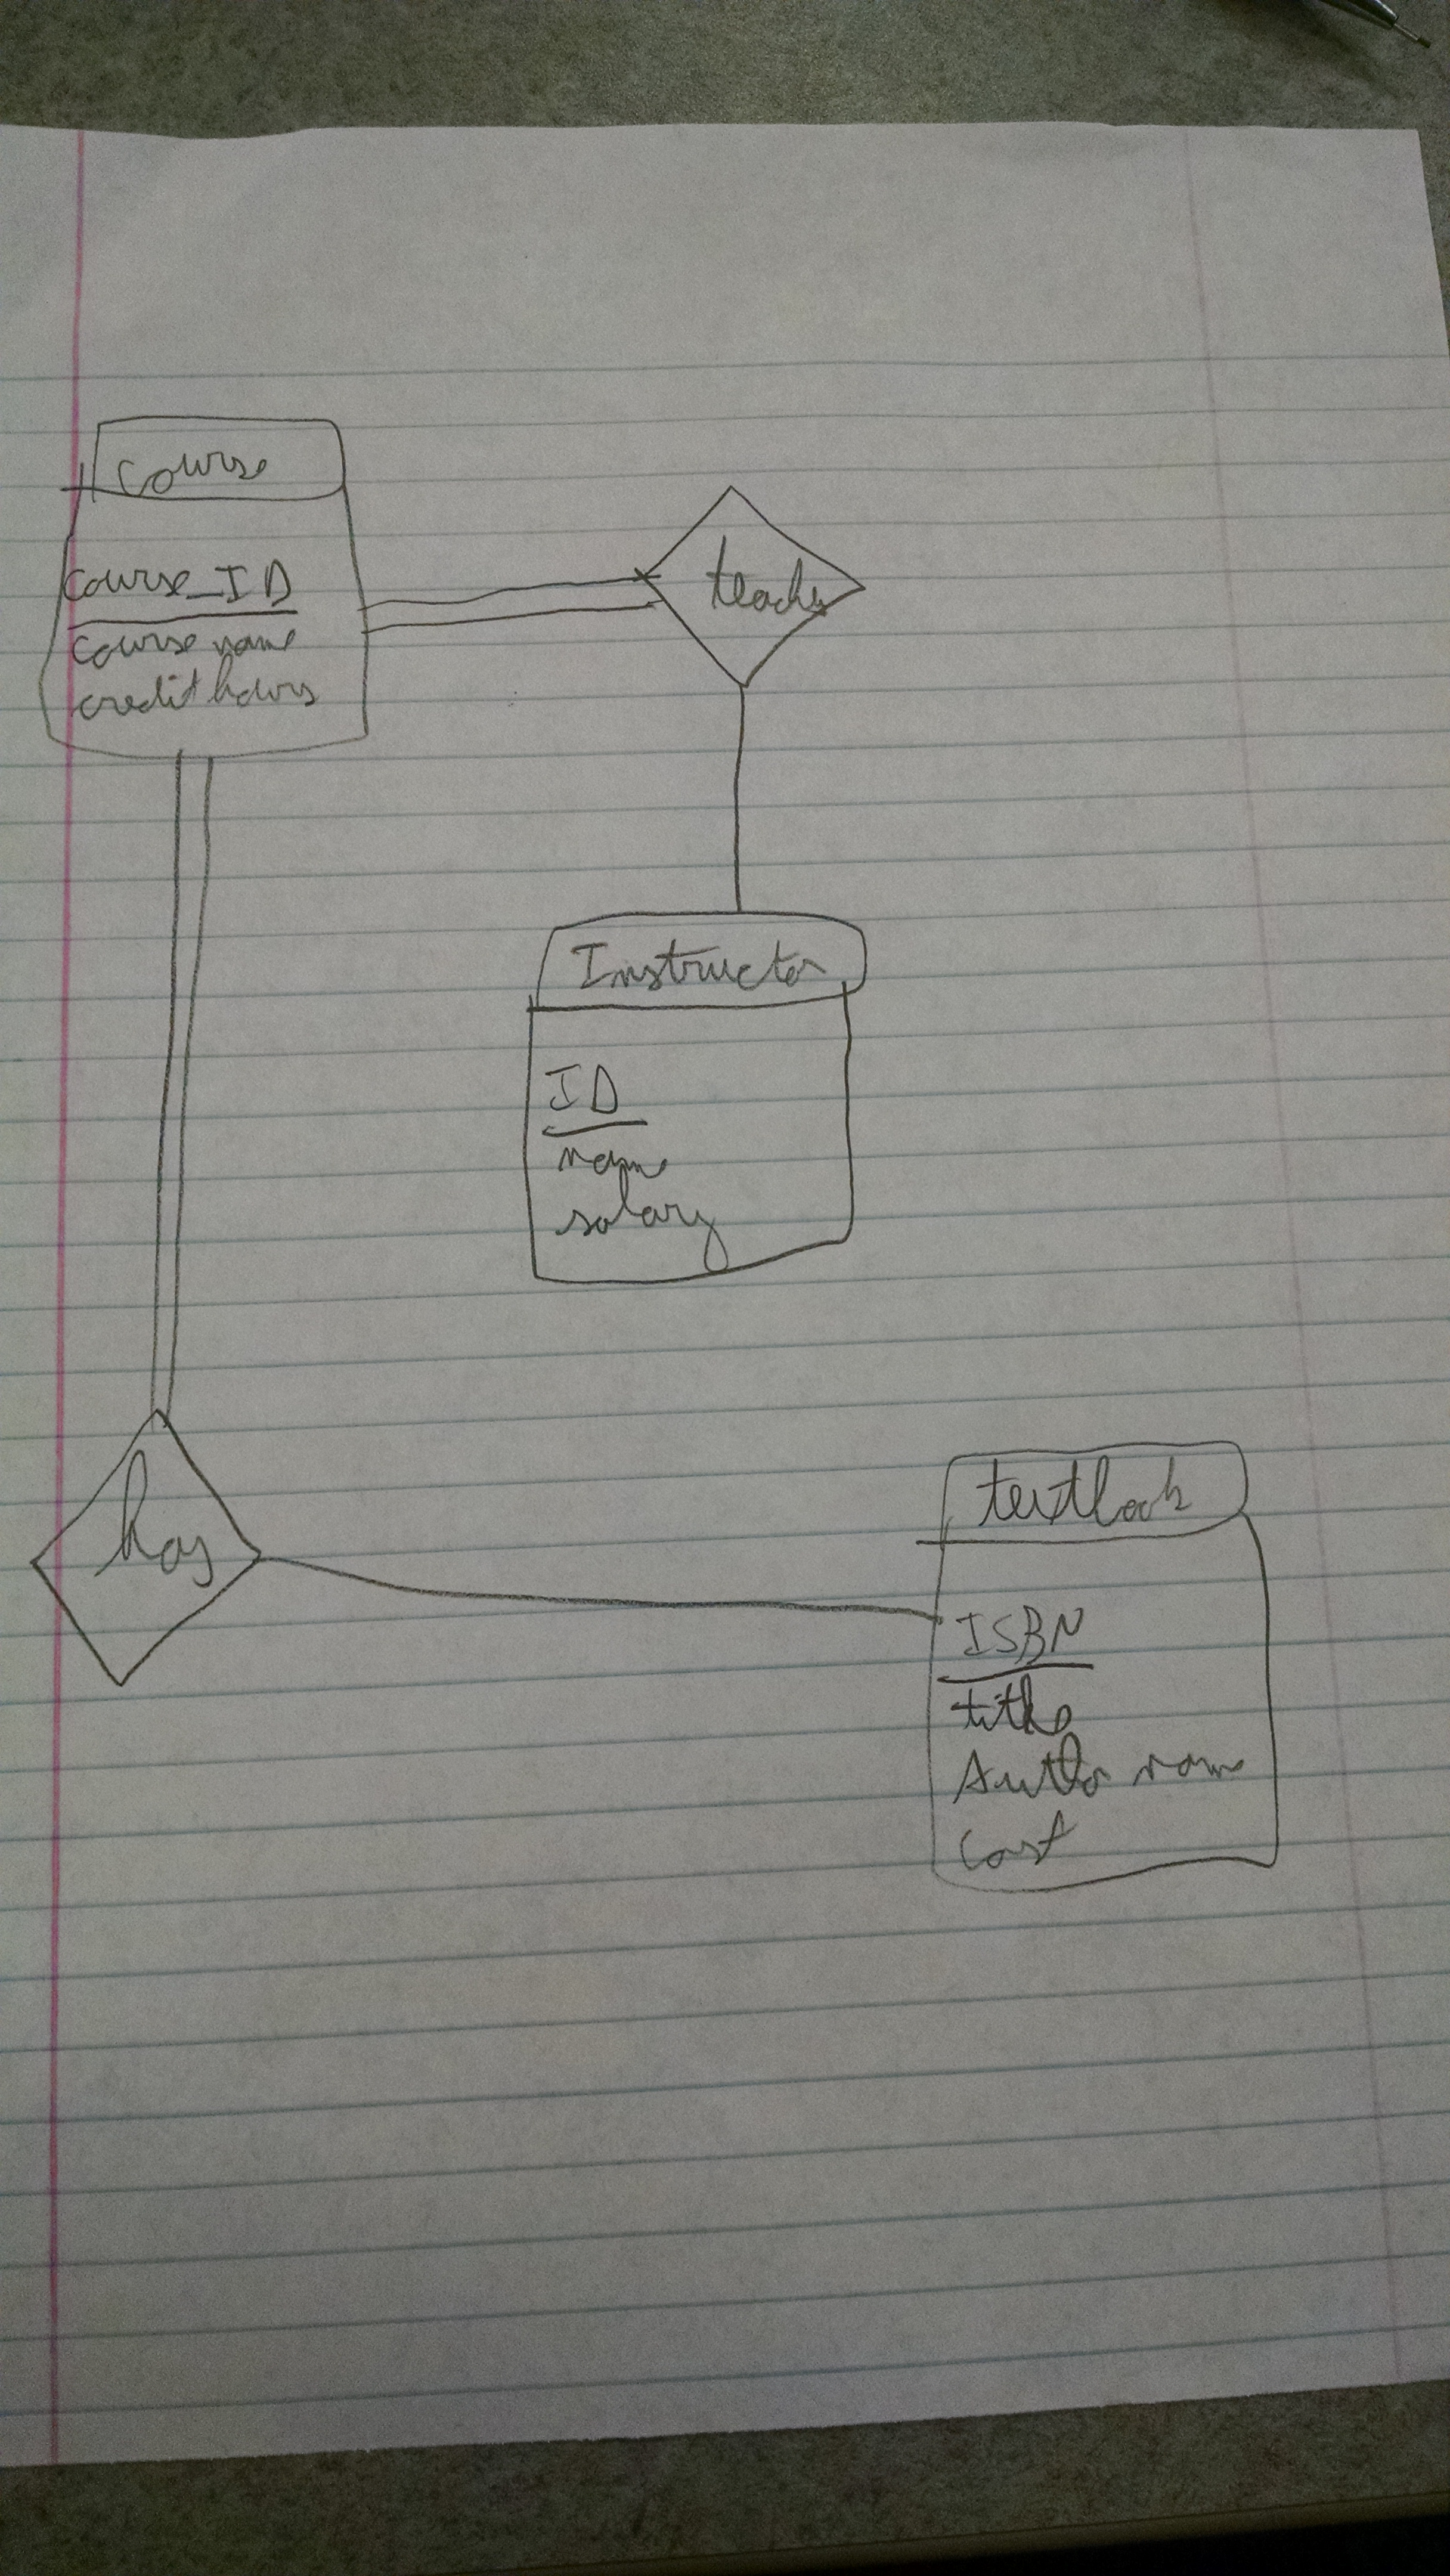 course
course_ID
course name
credit hours
teaches
Instructor
ID
name
salary
has
textbook
ISBN
title
Author name
Cost